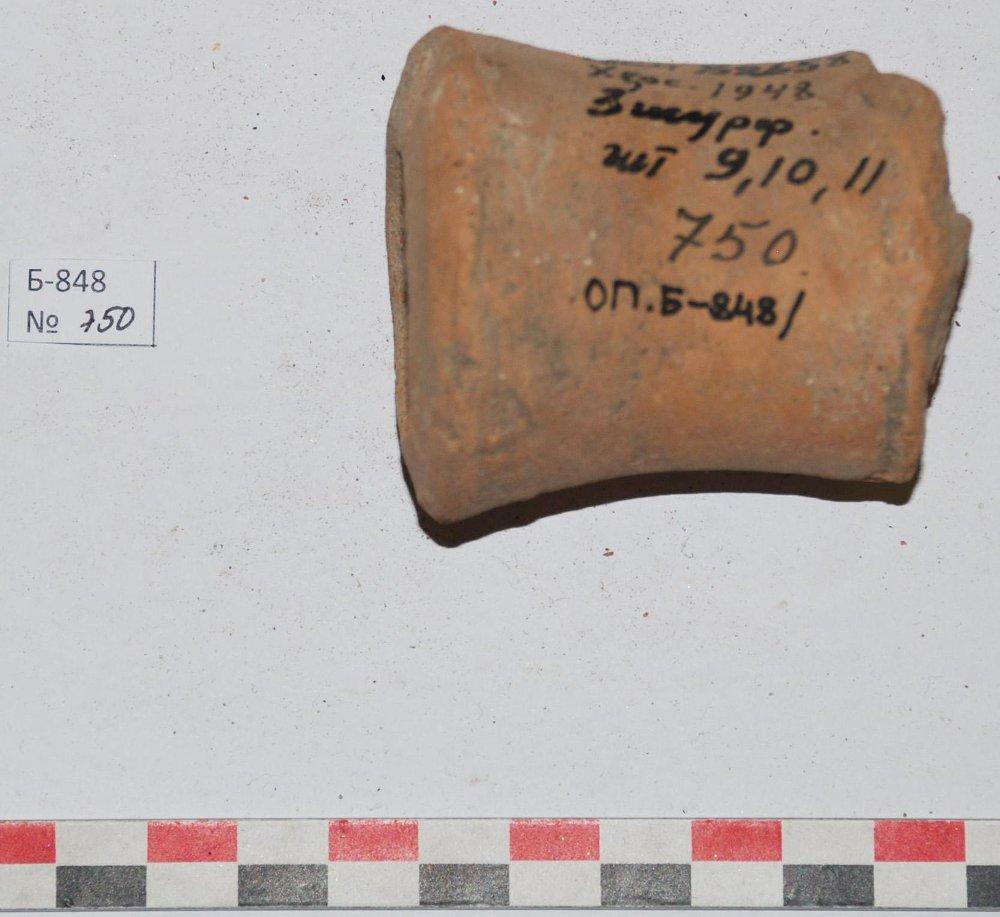 Б-848
№ 750
Херс. 1948
шт 9,10,11
750
ОП.Б-848/